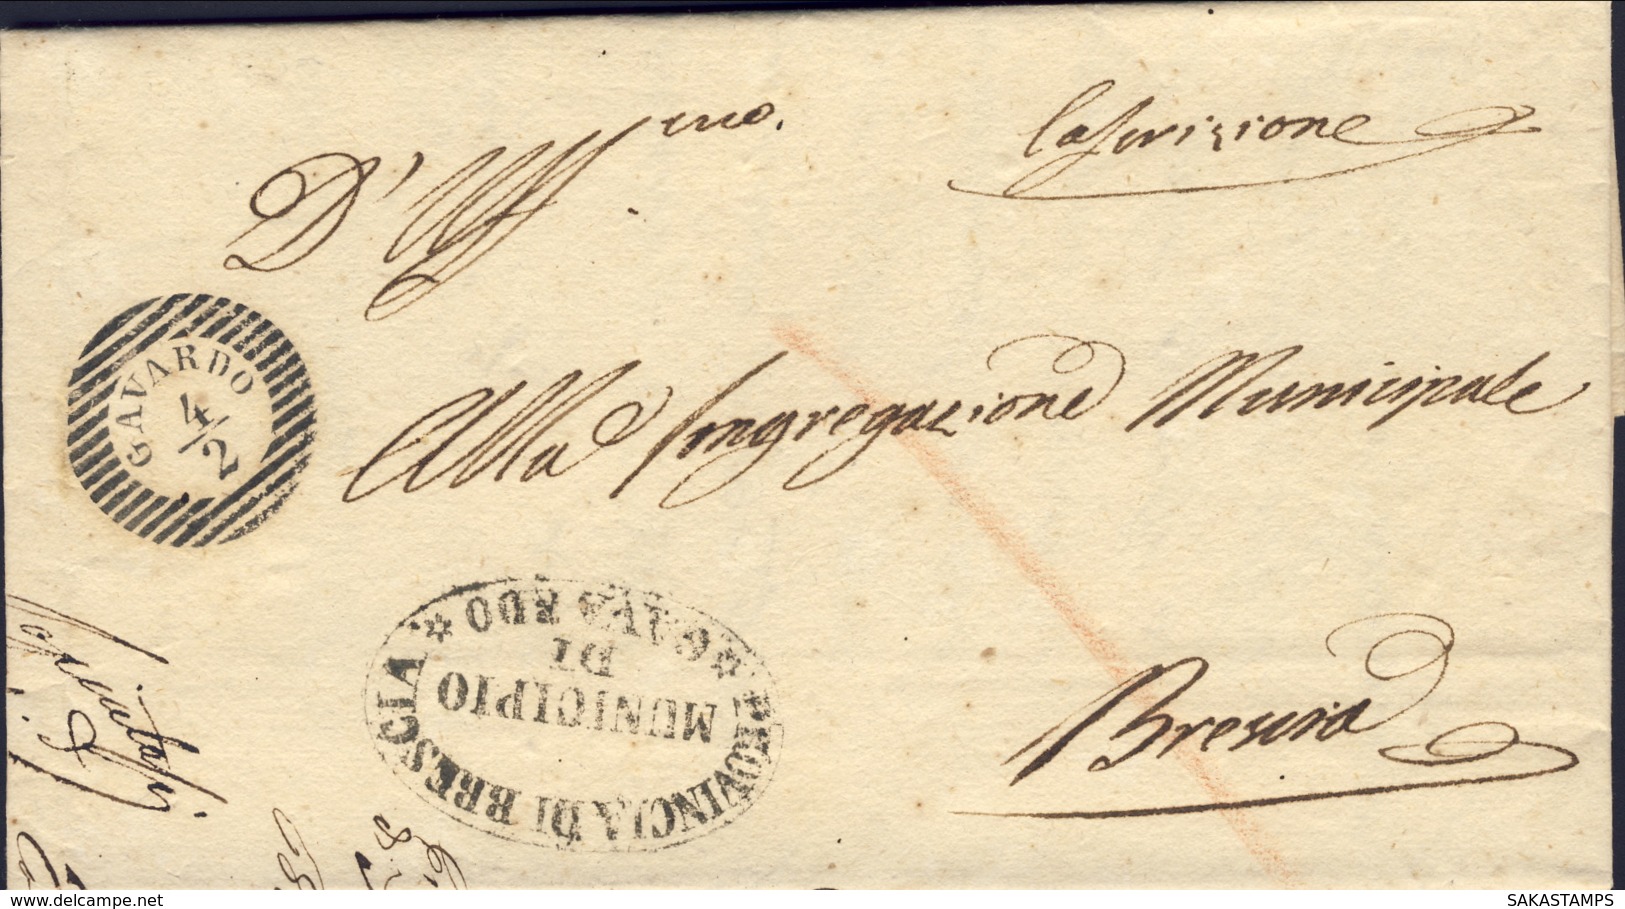 D'Uff.mo.
Coscrizione
GAVARDO
4/2
Alla Congregazione Municipale
PROVINCIA DI BRESCIA
MUNICIPIO
DI
GAVARDO
Brescia
delcampe.net
SAKASTAMPS